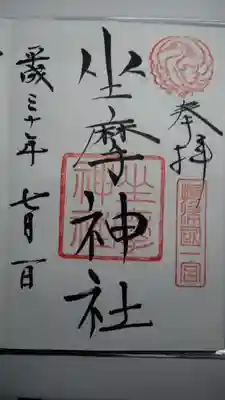 奉拝
摂津國一宮
坐摩神社
坐摩神社
平成三十年七月一日